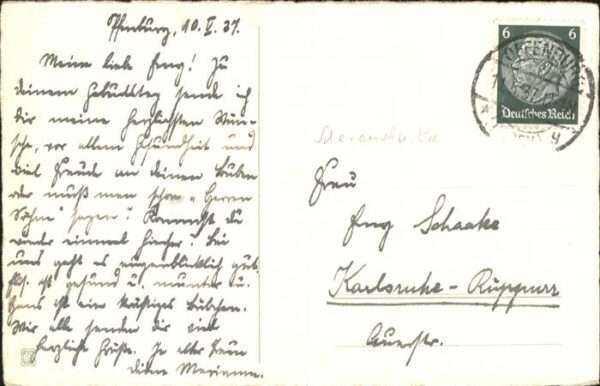 Offenburg, 10. V. 37.
Meine liebe Eng! Zu
deinem Geburtstag sende ich
dir meine herzlichsten Wün-
sche, vor allem Gesundheit und
viel Freude an deinen Buben
oder muß man schon „Herren
Söhne" sagen? Kommst du
wieder einmal hierher? Bei
uns geht es augenblicklich gut,
ist gesund u. munter u.
Hans ist ein kräftiges Bübchen.
Wir alle senden dir viel
herzliche Grüße. In alter Treue
deine Marianne.
6 6
OFFENBURG
Deutsches Reich
Frau
Eng Schaake
Karlsruhe-Rüppurr
Auerstr.